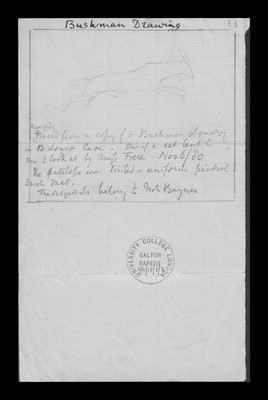 Bushman Drawing
Traced from a copy of a Bushman drawing
in Cave. One of a set lent to
me to look at by Miss Frere Nov 6/80
The antelope was tinted a uniform
The originals belong to Mr Baynes
UNIVERSITY COLLEGE LONDON
GALTON
PAPERS